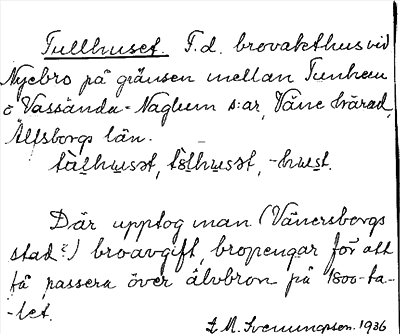 Tullhuset. F.d. brovakthus vid
Nyebro på gränsen mellan Tunhem
o Vassända-Naglum s:ar, Väne härad,
Älfsborgs län.
Där upptog man (Vänersborgs
stad?) broavgift, bropengar för att
få passera över älvbron på 1800-ta-
-let.
1936